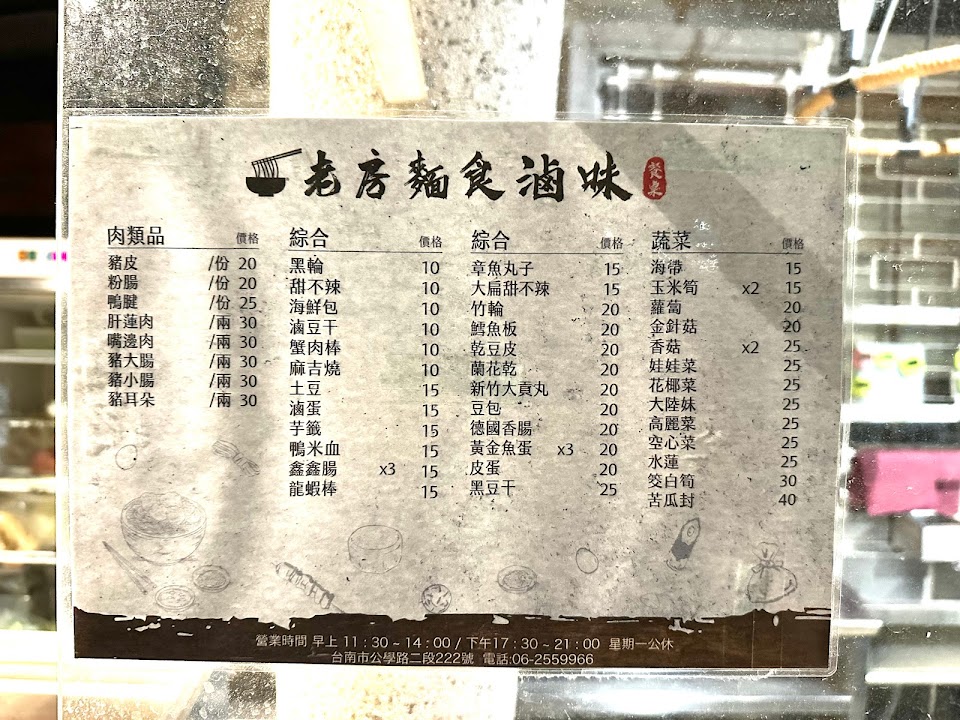 老房麵食滷味 餐桌
肉類品 價格
豬皮 /份 20
粉腸 /份 20
鴨腱 /份 25
肝蓮肉 /兩 30
嘴邊肉 /兩 30
豬大腸 /兩 30
豬小腸 /兩 30
豬耳朵 /兩 30
綜合 價格
黑輪 10
甜不辣 10
海鮮包 10
滷豆干 10
蟹肉棒 10
麻吉燒 10
土豆 15
滷蛋 15
芋籤 15
鴨米血 15
鑫鑫腸 x3 15
龍蝦棒 15
綜合 價格
章魚丸子 15
大扁甜不辣 15
竹輪 20
鱈魚板 20
乾豆皮 20
蘭花乾 20
新竹大貢丸 20
豆包 20
德國香腸 20
黃金魚蛋 x3 20
皮蛋 20
黑豆干 25
蔬菜 價格
海帶 15
玉米筍 x2 15
蘿蔔 20
金針菇 20
香菇 x2 25
娃娃菜 25
花椰菜 25
大陸妹 25
高麗菜 25
空心菜 25
水蓮 25
筊白筍 30
苦瓜封 40
營業時間 早上 11：30 ~ 14：00 / 下午17：30 ~ 21：00 星期一公休
台南市公學路二段222號 電話:06-2559966